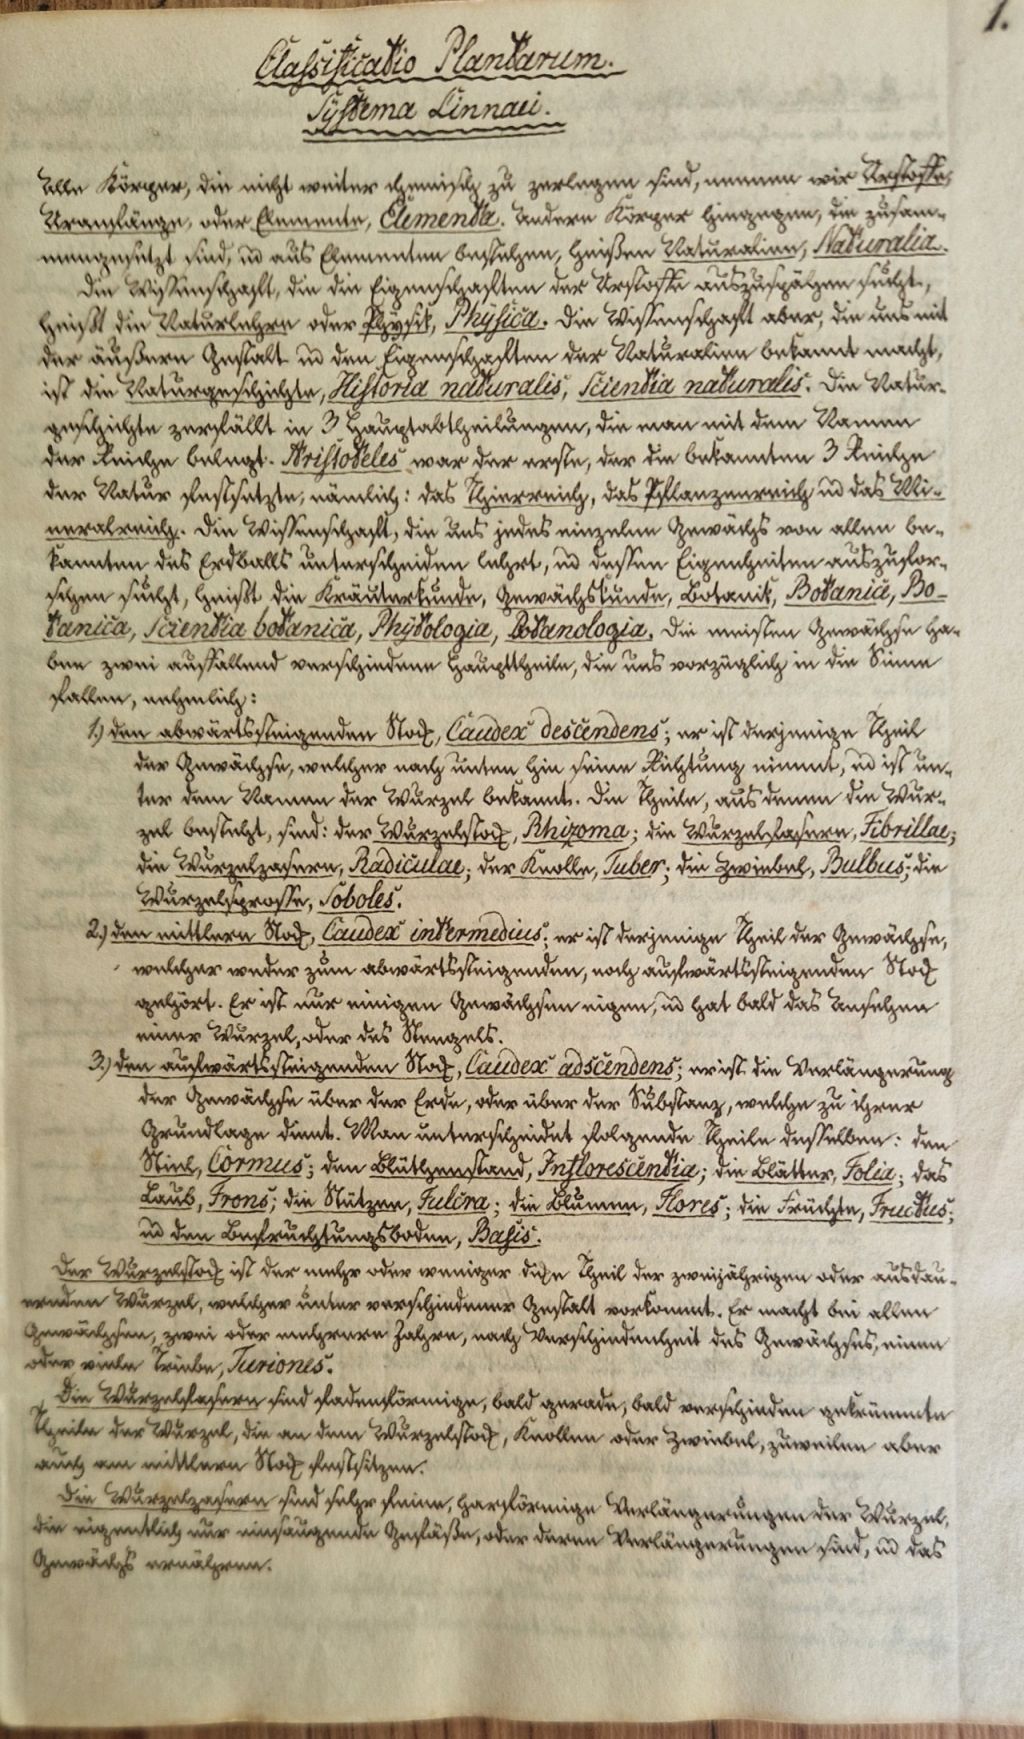 1.
Classificatio Plantarum.
Systema Linnaei.
Alle Körper, die nicht weiter chemisch zu zerlegen sind, nennen wir Urstoffe,
Uranfänge, oder Elemente, Elementa. Andere Körper hingegen, die zusam-
mengesetzt sind, u aus Elementen bestehen, heißen Naturalien, Naturalia.
Die Wissenschaft, die die Eigenschaften der Urstoffe auszuspähen sucht,
heißt die Naturlehre oder Physik, Physica. Die Wissenschaft aber, die uns mit
der äußern Gestalt u den Eigenschaften der Naturalien bekannt macht,
ist die Naturgeschichte, Historia naturalis, Scientia naturalis. Die Natur-
geschichte zerfällt in 3 Hauptabtheilungen, die man mit dem Namen
der Reiche belegt. Aristoteles war der erste, der die bekannten 3 Reiche
der Natur festsetzte, nämlich: das Thierreich, das Pflanzenreich u das Mi-
neralreich. Die Wissenschaft, die uns jedes einzelne Gewächs von allen be-
kannten des Erdballs unterscheiden lehrt, u dessen Eigenheiten auszufor-
schen sucht, heißt die Kräuterkunde, Gewächskunde, Botanik, Botanica, Bo-
tanica, Scientia botanica, Phytologia, Botanologia. Die meisten Gewächse ha-
ben zwei auffallend verschiedene Haupttheile, die uns vorzüglich in die Sinne
fallen, nehmlich:
1.) den abwärtssteigenden Stock, Caudex descendens; er ist derjenige Theil
der Gewächse, welcher nach unten hin seine Richtung nimmt, u ist un-
ter dem Namen der Wurzel bekannt. Die Theile, aus denen die Wur-
zel besteht, sind: der Wurzelstock, Rhizoma; die Wurzelfasern, Fibrillae;
die Wurzelzasern, Radiculae; der Knolle, Tuber; die Zwiebel, Bulbus; die
Wurzelsprosse, Soboles.
2.) den mittlern Stock, Caudex intermedius; er ist derjenige Theil der Gewächse,
welcher weder zum abwärtssteigenden, noch aufwärtssteigenden Stock
gehört. Er ist nur einigen Gewächsen eigen, u hat bald das Ansehen
einer Wurzel, oder des Stengels.
3.) den aufwärtssteigenden Stock, Caudex adscendens; er ist die Verlängerung
der Gewächse über der Erde, oder über der Substanz, welche zu ihrer
Grundlage dient. Man unterscheidet folgende Theile desselben: den
Stiel, Cormus; den Blüthenstand, Inflorescentia; die Blätter, Folia; das
Laub, Frons; die Stützen, Fulcra; die Blumen, Flores; die Früchte, Fructus;
u den Befruchtungsboden, Basis.
Der Wurzelstock ist der mehr oder weniger dicke Theil der zweijährigen oder ausdau-
ernden Wurzel, welcher unter verschiedener Gestalt vorkommt. Er macht bei allen
Gewächsen, zwei oder mehrere Jahre, nach Verschiedenheit des Gewächses, einen
oder viele Triebe, Turiones.
Die Wurzelfasern sind fadenförmige, bald gerade, bald verschieden gekrümmte
Theile der Wurzel, die an dem Wurzelstock, Knollen oder Zwiebel, zuweilen aber
auch am mittlern Stock festsitzen.
Die Wurzelzasern sind sehr feine, harförmige Verlängerungen der Wurzel,
die eigentlich nur einsaugende Gefäße, oder deren Verlängerungen sind, u das
Gewächs ernähren.